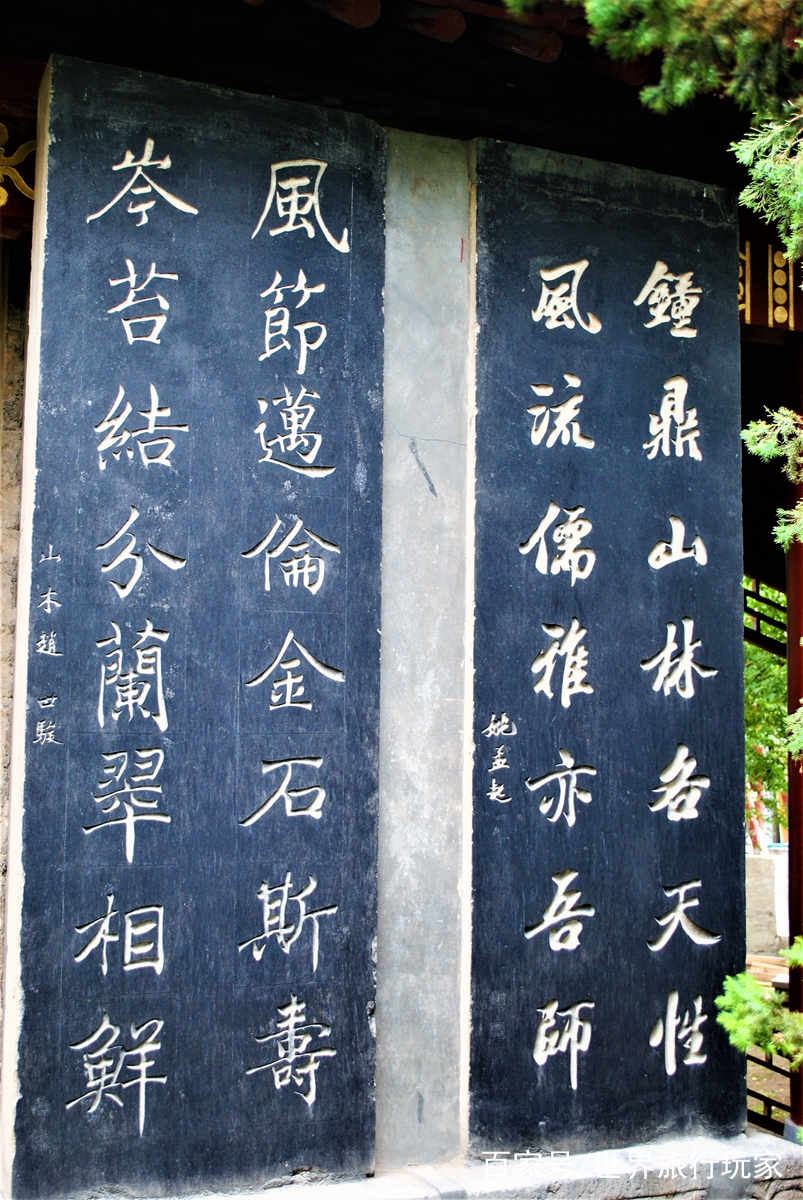 鐘鼎山林各天性
風流儒雅亦吾師
姚孟起
風節邁倫金石斯壽
岑苔結分蘭翠相鮮
山木趙世駿
百家号/世界旅行玩家